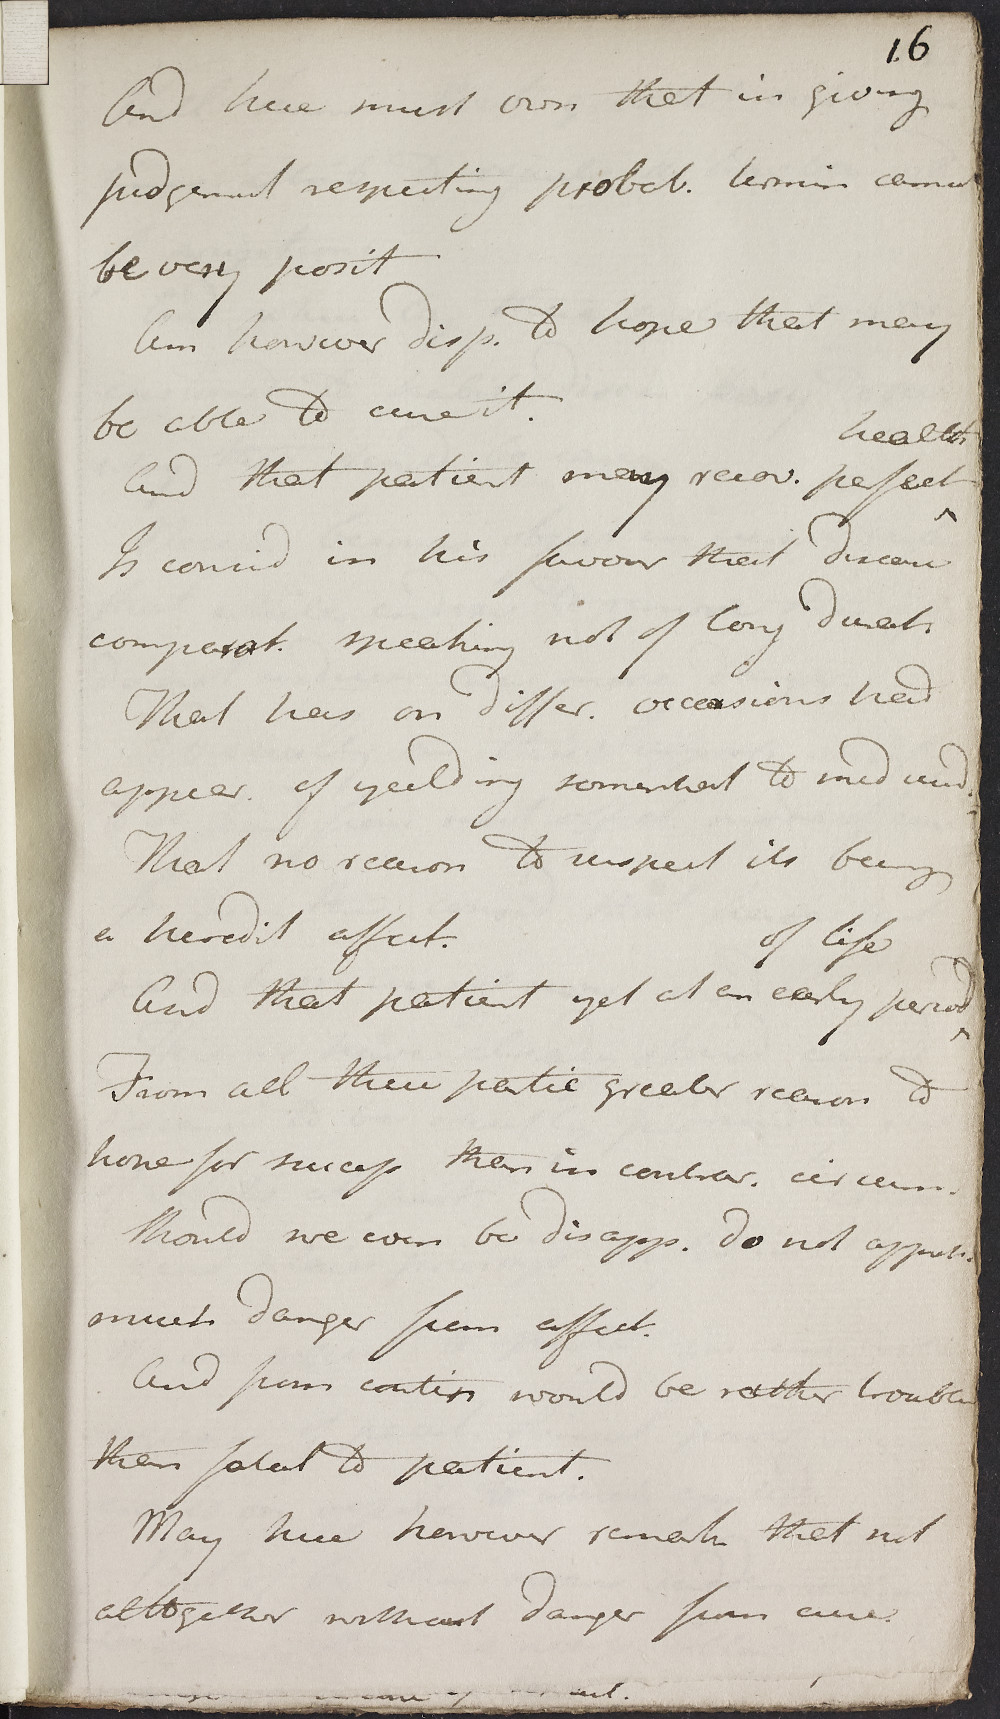 16
And here must own that in giving
judgement respecting probab. termin cannot
be very posit
Am however disp. to hope that may
be able to cure it.
health
And that patient may recov. perfect ^
Is conceid in his favour that disease
comparat. speaking not of long durat.
That has on differ. occasions had
appear. of yeilding somewhat to med
That no reason to suspect its being
a heredit affect.
of life
And that patient yet at an early period ^
From all these partic greater reason to
hope for success than in contrar. circum.
Should we even be disapp. do not appreh.
much danger from affect.
And from contin would be rather troubles
than fatal to patient.
May here however remark that not
altogether without danger from cure.